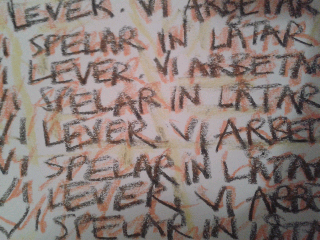 LEVER. VI ARBETAR
I SPELAR IN LÅTAR
I LEVER. VI ARBETAR
SPELAR IN LÅTAR
VI LEVER. VI ARBET
VI SPELAR IN LÅTA
VI LEVER. VI ARBE
VI SPELAR IN LÅTA